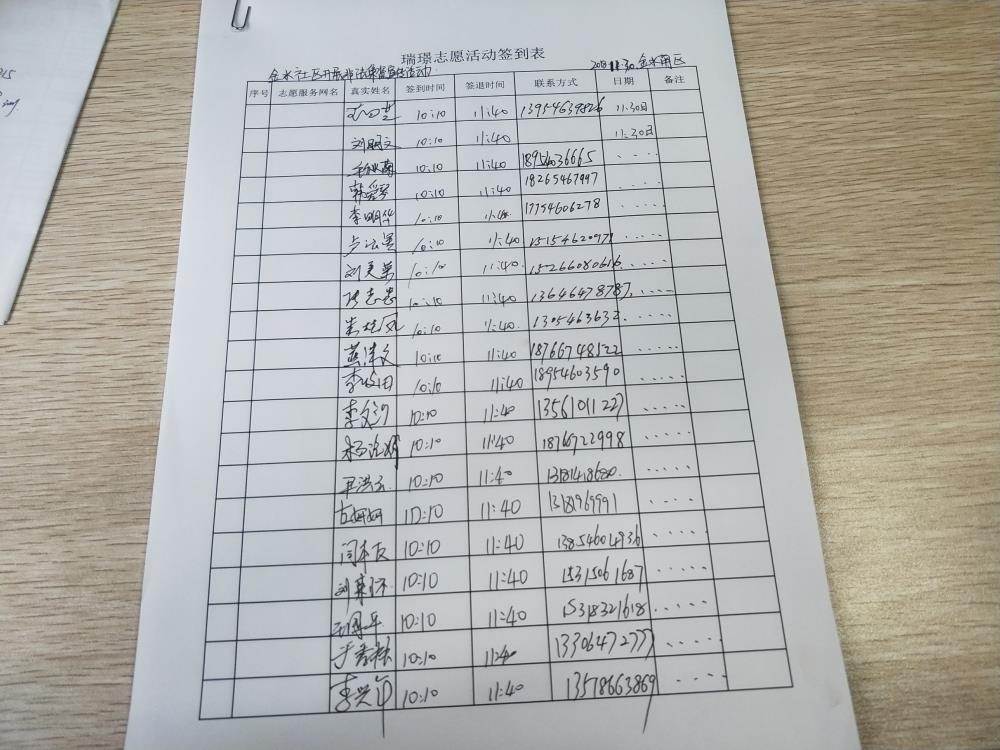 瑞璟志愿活动签到表
金水社区开展非法集资宣传活动 11.30 金水南区
序号 志愿服务网名 真实姓名 签到时间 签退时间 联系方式 日期 备注
10:10 11:40 13954639826 11.30日
刘明文 10:10 11:40 11.30日
10:10 11:40 18954036665
韩爱琴 10:10 11:40 18265467997
李明华 10:10 11:40 17754606278
10:10 11:40 15154620971
刘美荣 10:10 11:40 15266080616
张志忠 10:10 11:40 13646478787
10:10 11:40 1305463632
燕津文 10:10 11:40 18766748122
10:10 11:40 18954603590
李文沙 10:10 11:40 13561011227
杨 10:10 11:40 18766722998
10:10 11:40 13181418680
10:10 11:40 1318969991
闫本友 10:10 11:40 13854604936
刘 10:10 11:40 15315061687
10:10 11:40 15318321618
于秀桂 10:10 11:40 13306472777
李兴 10:10 11:40 13578663869